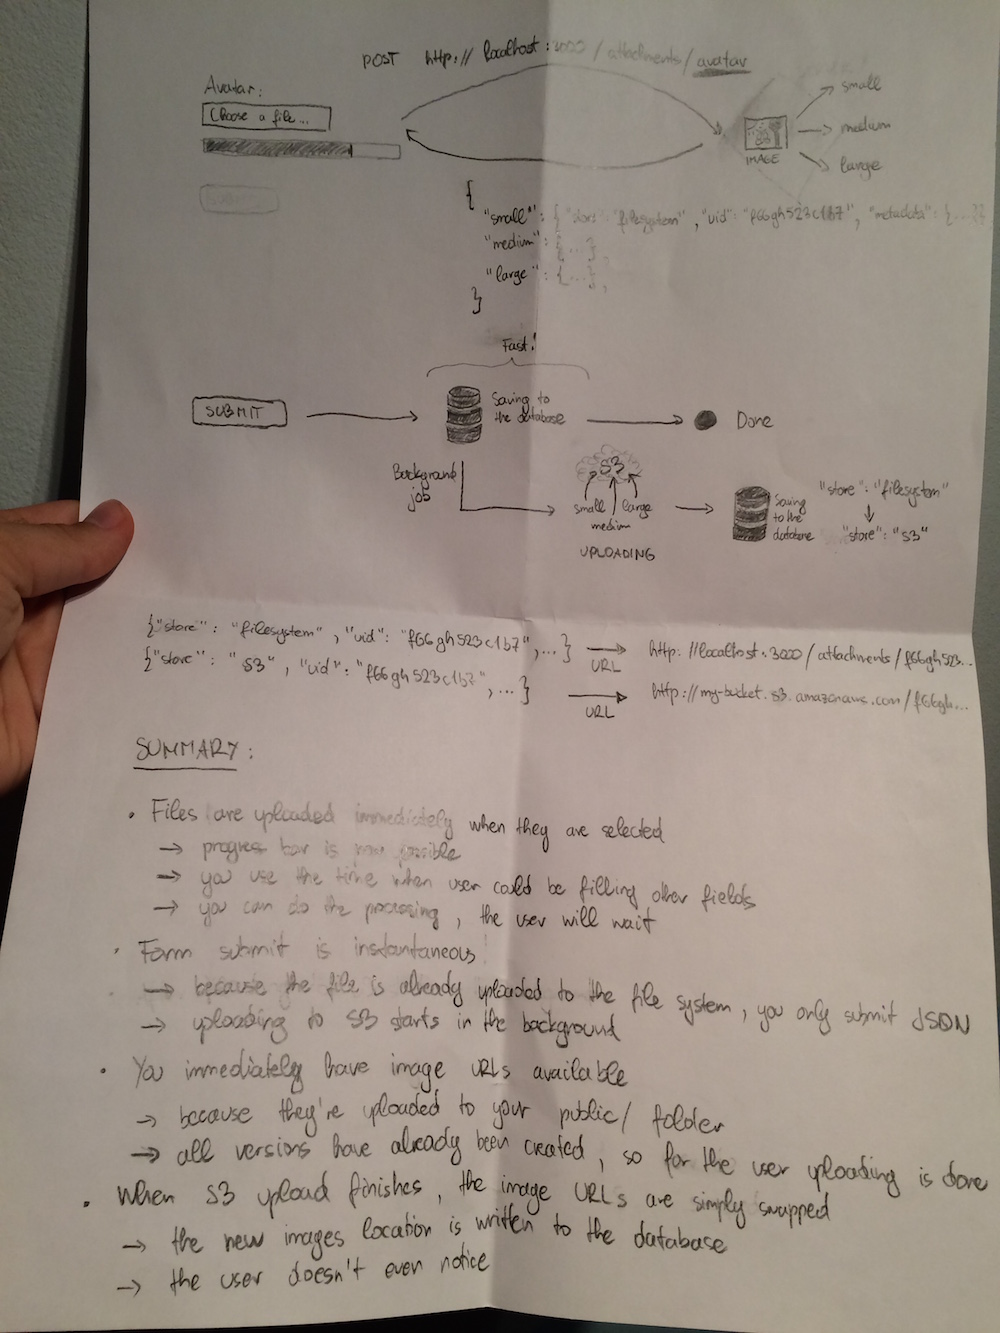 POST http://localhost:3000/attachments/avatar
Avatar:
Choose a file...
small
medium
large
IMAGE
SUBMIT
{
"small": { "store": "filesystem", "uid": "f66gh523c1b7", "metadata": {...}}
"medium": {...},
"large": {...},
}
Fast!
SUBMIT
Saving to
the database
Done
Background
job
S3
small large
medium
UPLOADING
Saving
to the
database
"store": "filesystem"
"store": "S3"
{"store": "filesystem", "uid": "f66gh523c1b7",...} → http://localhost:3000/attachments/f66gh523...
URL
{"store": "S3", "uid": "f66gh523c1b7",...} → http://my-bucket.s3.amazonaws.com/f66gh...
URL
SUMMARY:
• Files are uploaded immediately when they are selected
→ progress bar is now possible
→ you use the time when user could be filling other fields
→ you can do the processing, the user will wait
• Form submit is instantaneous!
→ because the file is already uploaded to the file system, you only submit JSON
→ uploading to S3 starts in the background
• You immediately have image URLs available
→ because they're uploaded to your public/ folder
→ all versions have already been created, so for the user uploading is done
• When S3 upload finishes, the image URLs are simply swapped
→ the new images location is written to the database
→ the user doesn't even notice